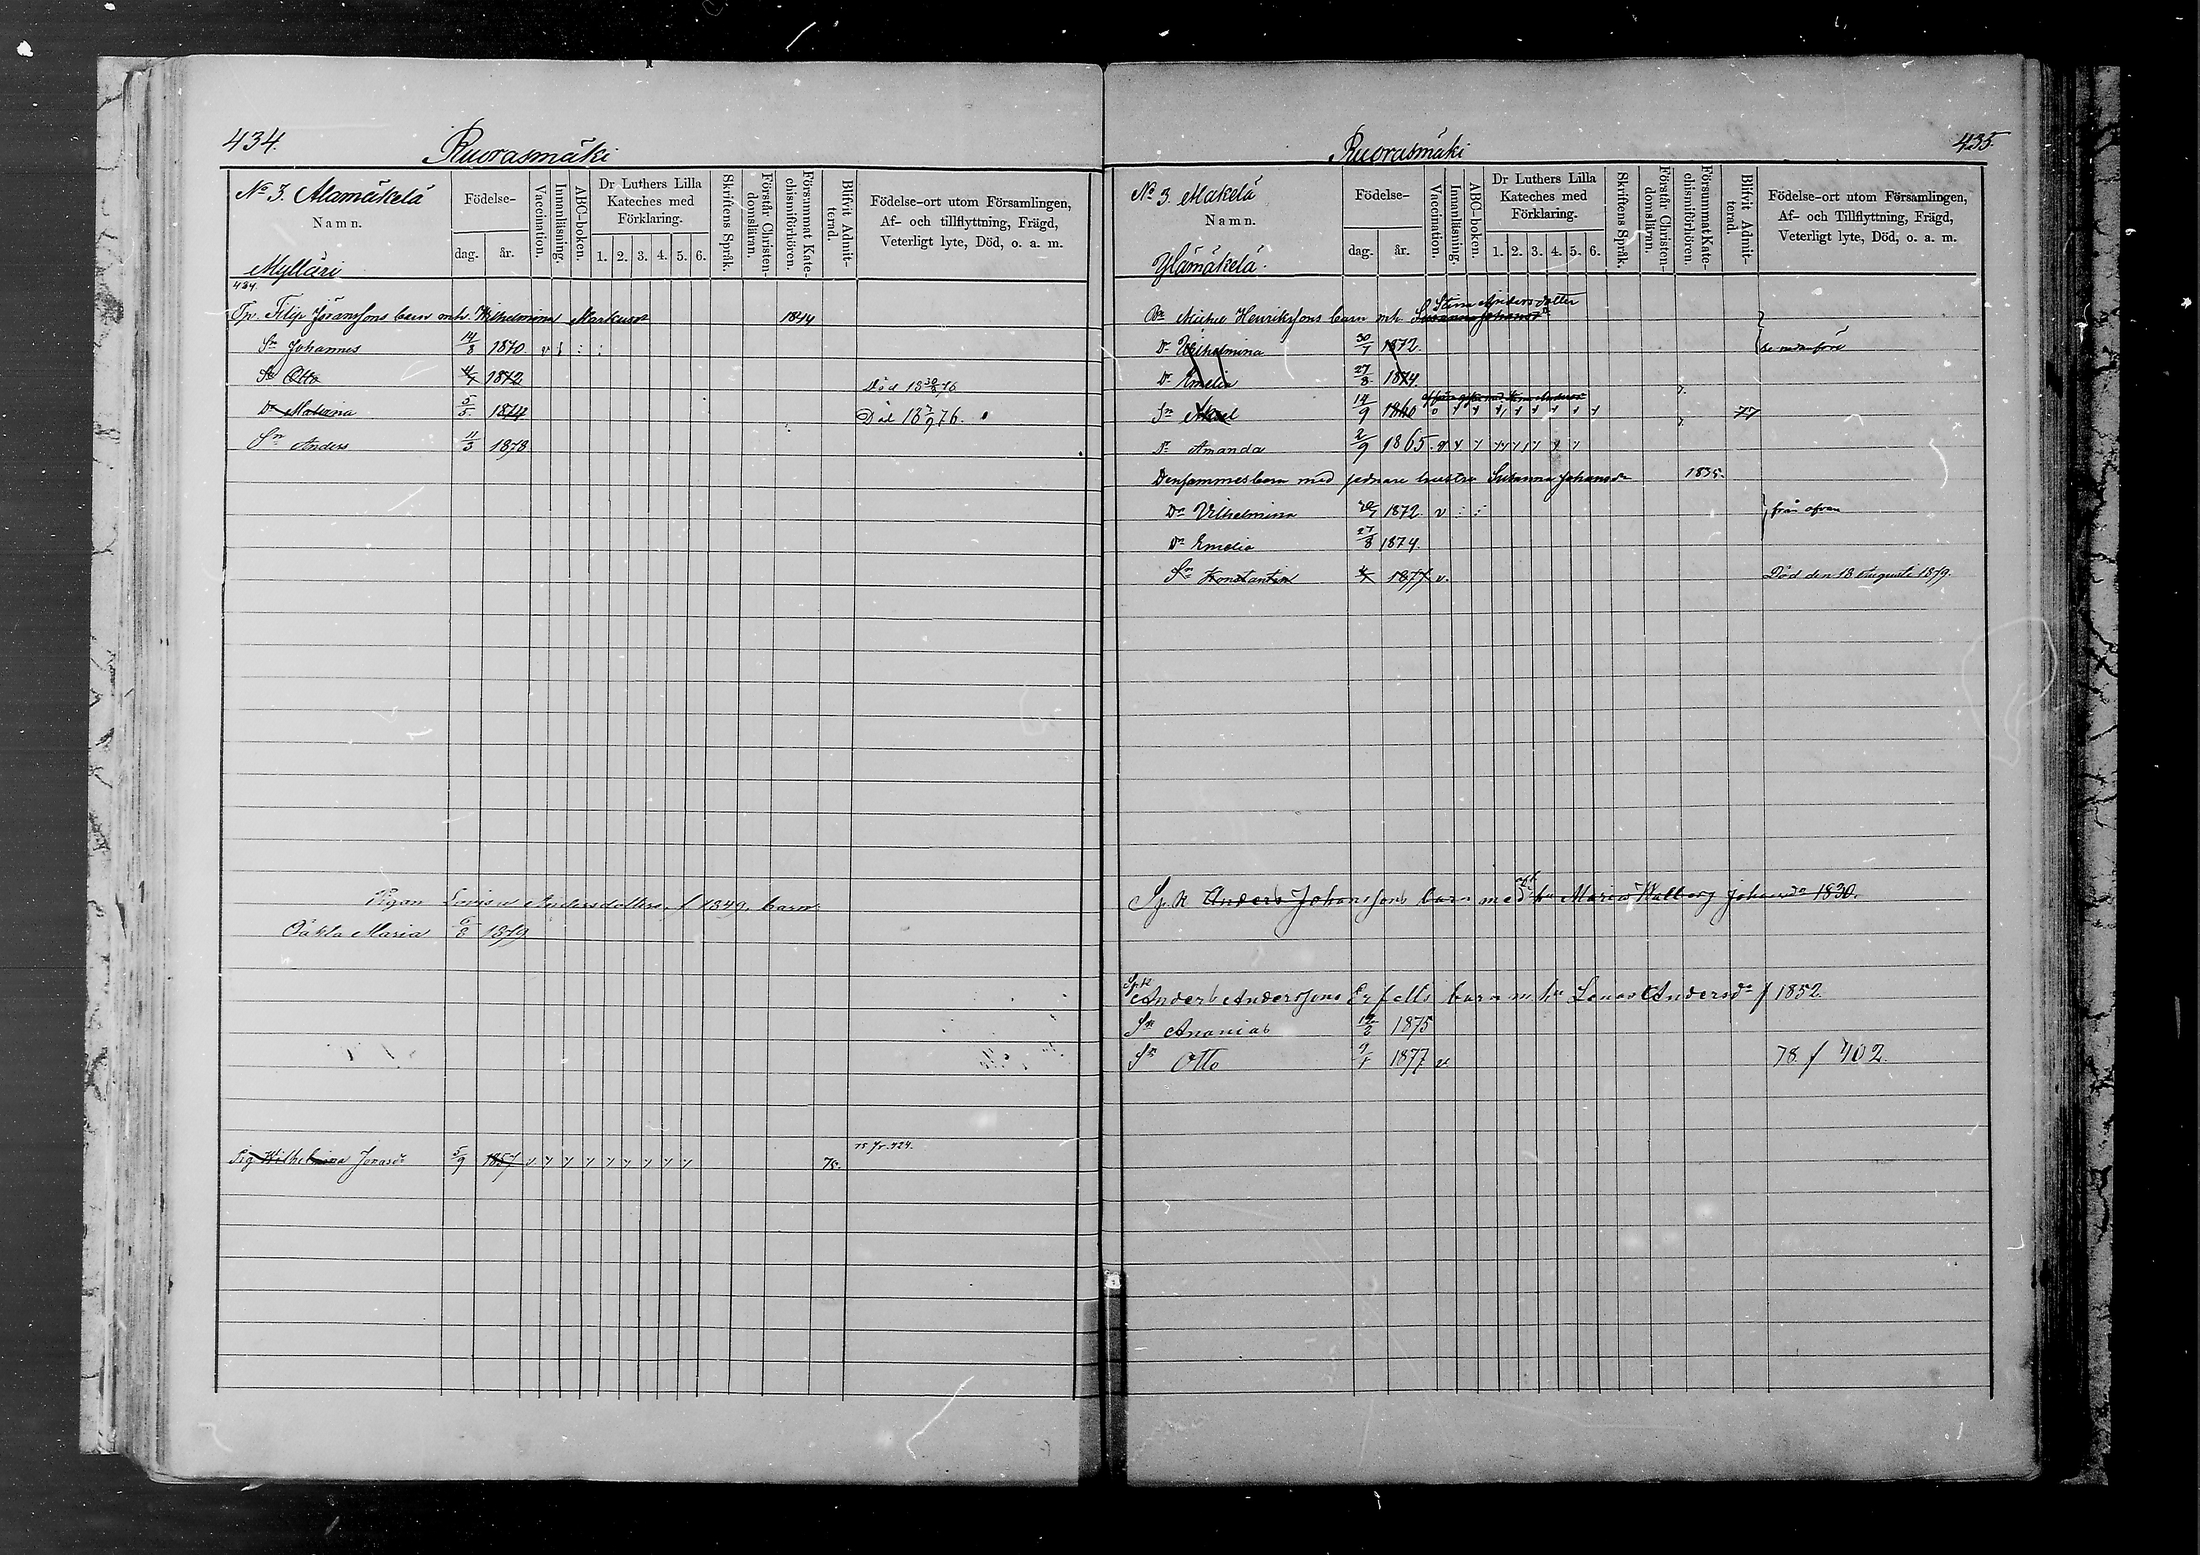 434.
Ruorasmäki
No 3. Alamäkelä
Namn.
Mylläri
Födelse-
dag.
år.
Vaccination.
Innanläsning.
ABC-boken.
Dr Luthers Lilla
Kateches med
Förklaring.
1. 2. 3. 4. 5. 6.
Skriftens Språk.
Förstår Christen-
domsläran.
Försummat Kate-
chismiförhören.
Blifvit Admit-
terad.
Födelse-ort utom Församlingen,
Af- och tillflyttning, Frägd,
Veterligt lyte, Död, o. a. m.
434.
Tp. Filip Göranssons barn mh. Wilhelmina Markusdr 1844
Sn Johannes 14/8 1870. v
Sn Otto 1872 Död 18 30/8 76
Dr 5/5 1874 Död 18 2/9 76.
Sn Anders 11/3 1878
Pigan Lovisa Andersdotters f 1849. barn
Maria 6/8 1879
75 fr. 424.
Pig Wilhelmina Jonasdr 5/9 1857 75.
Ruorasmäki
435.
No 3. Mäkelä
Namn.
Ylämäkelä.
Födelse-
dag.
år.
Vaccination.
Innanläsning.
ABC-boken.
Dr Luthers Lilla
Kateches med
Förklaring.
1. 2. 3. 4. 5. 6.
Skriftens Språk.
Förstår Christen-
domsläran.
Försummat Kate-
chismiförhören.
Blifvit Admit-
terad.
Födelse-ort utom Församlingen,
Af- och Tillflyttning, Frägd,
Veterligt lyte, Död, o. a. m.
Stina Andersdotter
Bn Michel Henrikssons barn mh. Susanna Johansdr
Dr Wilhelmina 30/7 1872. se nedanföre
Dr Emelia 27/8 1874.
Sn 14/9 1860 77
Dr Amanda 2/9 1865.
Densammes barn med sednare hustru Susanna Johansdr 1835.
Dr Vilhelmina 1872 v från ofvan
Dr Emelia 27/8 1874.
Sn Konstantin 1877 v. Död den 18 Augusti 1879.
Sp.k Anders Johanssons barn med hu Maria Walborg Johansdr 1830.
Spk
Anders Anderssons barn m hu Andersdr f 1852.
Sn Ananias 12/2 1875
Sn Otto 1877 v 78 f 402.